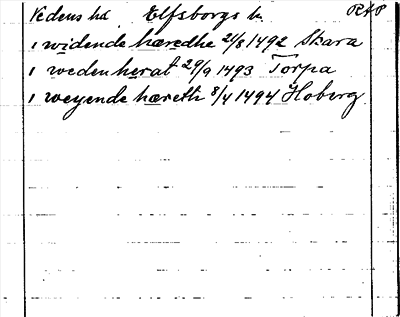 Vedens hd Elfsborgs l. RAP
i widende hæredhe 2/8 1492 Skara
i weden herat 29/9 1493 Torpa
i weyende hæreth 8/4 1494 Hoberg